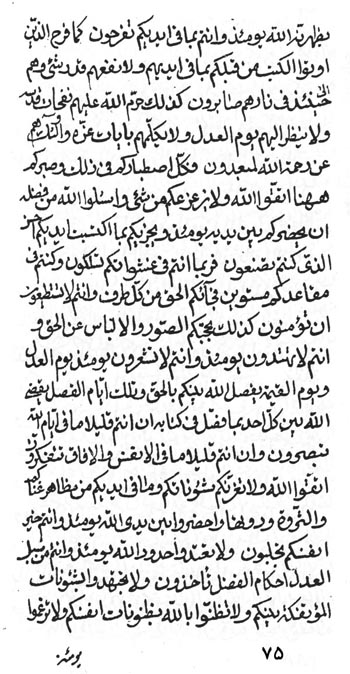 يظهره الله يومئذ وانتم بما فى ايديكم تفرحون كما فرح الذين
اوتوا الكتب من قبلكم بما فى ايديهم ولا نفعهم قدر شئ وهم
حينئذ فى نارهم صابرون كذلك حرّم الله عليهم نفحات قدسه
ولا ينظر اليهم يوم العدل ولا يكلّمهم بايات عزّه
عن رحمة الله لمبعدون وكلّ اصطباركم فى ذلك وصبركم
ههنا اتّقوا الله ولا يزعزعكم من شئ واسئلوا الله من فضله
ان يحضركم بين يديه يومئذ ويجزيكم بما اكتسبت ايديكم
الذى كنتم تصنعون فربما انتم فى تسلكون وكنتم فى
مقاعدكم مستوين فيأتكم الحق من كل طرف وانتم لا تستطيعون
ان تؤمنون كذلك يحجبكم الصور والالباس عن الحق و
انتم لا تهتدون يومئذ وانتم لا تشعرون يومئذ يوم العدل
ويوم القيمة يفصل الله بينكم بالحق وتلك ايّام الفصل يقضى
الله بين كلّ احد بما فصّل فى كتابه ان انتم قليلا ما فى ايّام الله
تبصرون وان انتم قليلا ما فى الانفس والافاق تتفكرون
اتقوا الله ولا تغرّنّكم شئوناتكم وما فى ايديكم من مظاهر
والثروة ودونها واحضروا بين يدى الله يومئذ وانتم خير
انفسكم ولا تعتدوا حدود الله يومئذ وانتم من سبل
العدل احكام الفصل تأخذون ولا بالشئونات
المؤتفكة بينكم ولا تظنّوا بالله بظنونات انفسكم ولا ترغبوا
يومئذ
٧٥